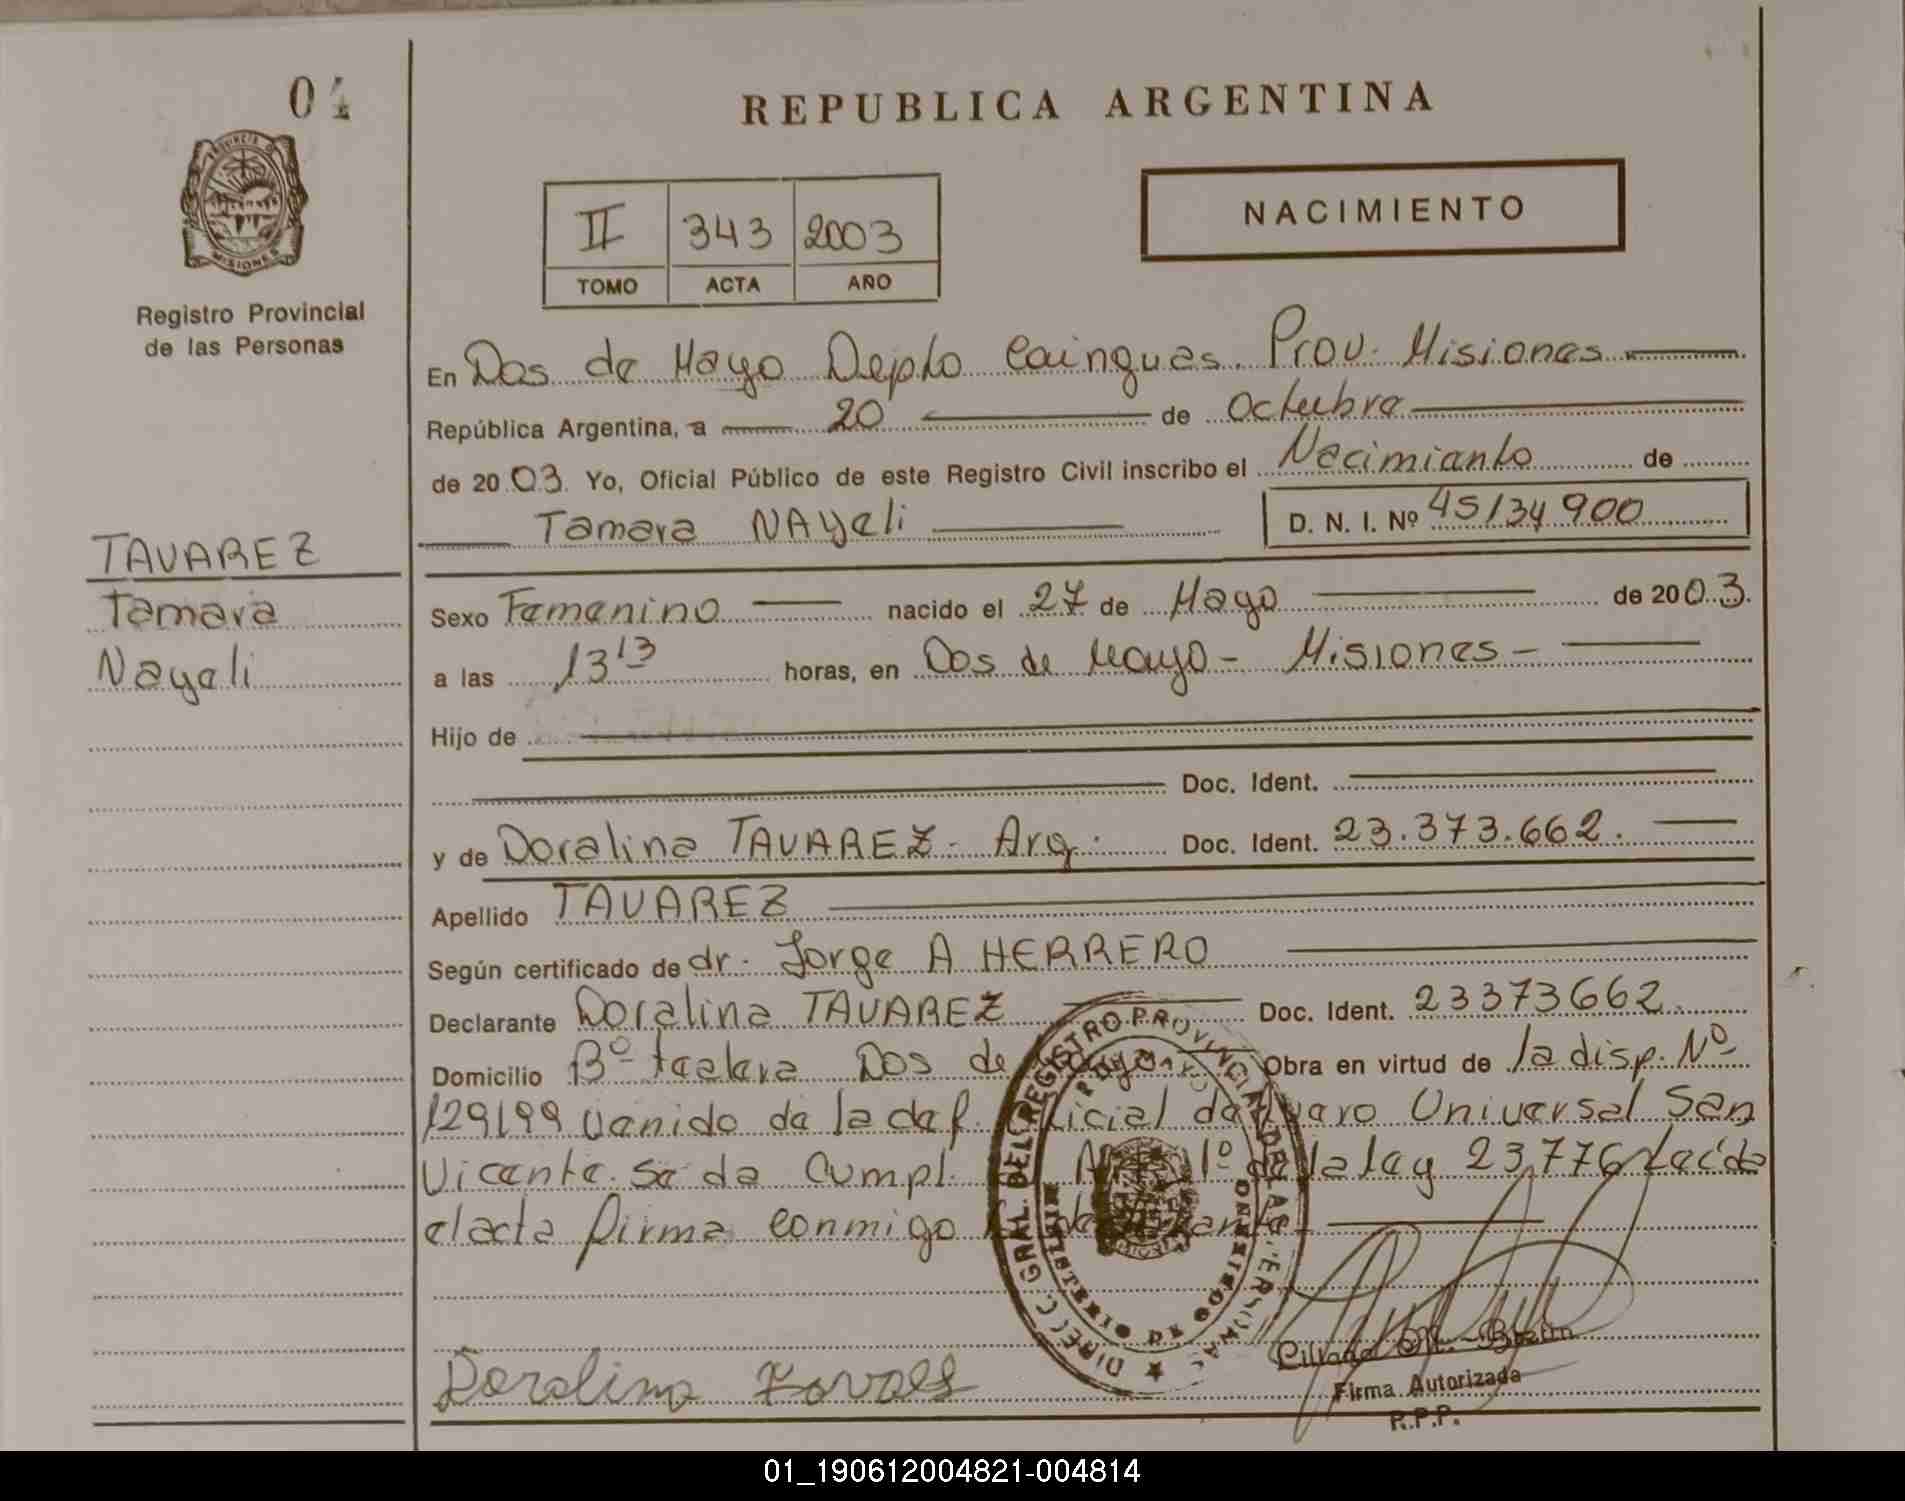 04
REPUBLICA ARGENTINA
NACIMIENTO
II 343 2003
TOMO ACTA AÑO
PROVINCIA DE
MISIONES
Registro Provincial
de las Personas
En Dos de Mayo Depto Cainguas. Prov. Misiones
República Argentina, a 20 de Octubre
de 2003. Yo, Oficial Público de este Registro Civil inscribo el Nacimiento de
Tamara NAYeli D. N. I. Nº 45134900
TAVAREZ
Tamara
Nayeli
Sexo Femenino nacido el 27 de Mayo de 2003.
a las 13 13 horas, en Dos de Mayo - Misiones -
Hijo de
Doc. Ident.
y de Doralina TAVAREZ - Arg. Doc. Ident. 23.373.662.
Apellido TAVAREZ
Según certificado de dr. Jorge A HERRERO
Declarante Doralina TAVAREZ Doc. Ident. 23373662
Domicilio Bº Dos de Mayo Obra en virtud de la disp. Nº
129199 Venido de la def. Oficial de Universal San
Vicente. Se da Cumpl. 1º de la ley 23.776 Leída
el acta firma conmigo
DIRECC. GRAL. DEL REGISTRO PROVINCIAL DE LAS PERSONAS
MINISTERIO DE GOBIERNO
MISIONES
Doralina
Firma Autorizada
R.P.P.
01_190612004821-004814